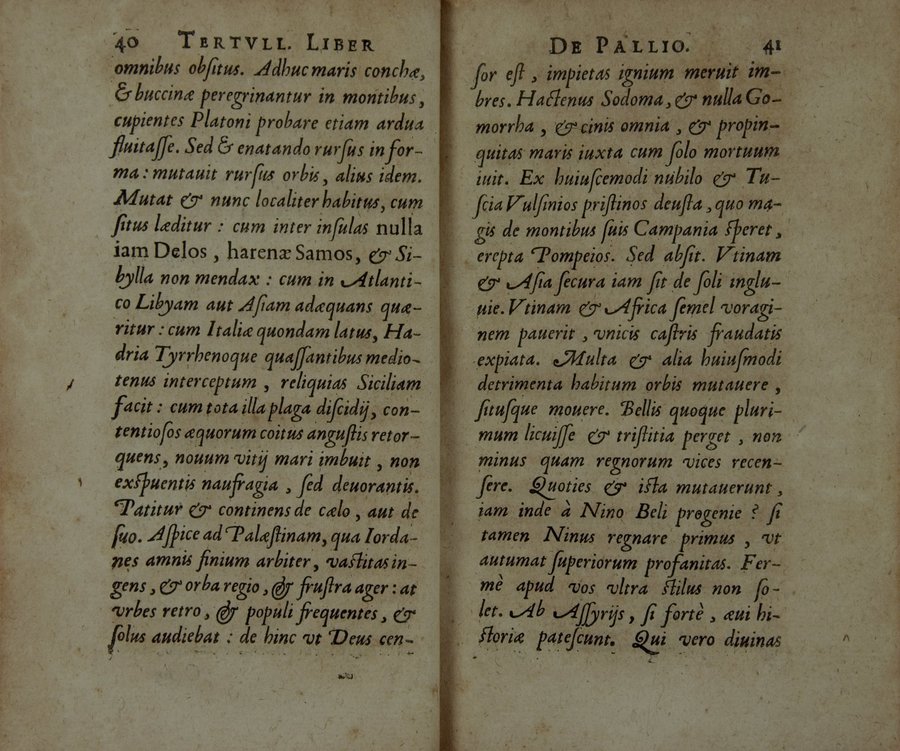 40 TERTVLL. LIBER
omnibus obſitus. Adhuc maris conchæ,
& buccinæ peregrinantur in montibus,
cupientes Platoni probare etiam ardua
fluitaſſe. Sed & enatando rurſus in for-
ma: mutauit rurſus orbis, alius idem.
Mutat & nunc localiter habitus, cum
ſitus læditur: cum inter inſulas nulla
iam Delos, harenæ Samos, & Si-
bylla non mendax: cum in Atlanti-
co Libyam aut Aſiam adæquans quæ-
ritur: cum Italiæ quondam latus, Ha-
dria Tyrrhenoque quaſſantibus medio-
tenus interceptum, reliquias Siciliam
facit: cum tota illa plaga diſcidij, con-
tentioſos æquorum coitus anguſtis retor-
quens, nouum vitij mari imbuit, non
exſpuentis naufragia, ſed deuorantis.
Patitur & continens de cælo, aut de
ſuo. Aſpice ad Palæſtinam, qua Iorda-
nes amnis finium arbiter, vaſtitas in-
gens, & orba regio, & fruſtra ager: at
vrbes retro, & populi frequentes, &
ſolus audiebat: de hinc vt Deus cen-
DE PALLIO. 41
ſor eſt, impietas ignium meruit im-
bres. Hactenus Sodoma, & nulla Go-
morrha, & cinis omnia, & propin-
quitas maris iuxta cum ſolo mortuum
iuit. Ex huiuſcemodi nubilo & Tu-
ſcia Vulſinios priſtinos deuſta, quo ma-
gis de montibus ſuis Campania ſperet,
erepta Pompeios. Sed abſit. Vtinam
& Aſia ſecura iam ſit de ſoli inglu-
uie. Vtinam & Africa ſemel voragi-
nem pauerit, vnicis caſtris fraudatis
expiata. Multa & alia huiuſmodi
detrimenta habitum orbis mutauere,
ſituſque mouere. Bellis quoque pluri-
mum licuiſſe & triſtitia perget, non
minus quam regnorum vices recen-
ſere. Quoties & iſta mutauerunt,
iam inde à Nino Beli progenie? ſi
tamen Ninus regnare primus, vt
autumat ſuperiorum profanitas. Fer-
mè apud vos vltra ſtilus non ſo-
let. Ab Aſſyrijs, ſi fortè, æui hi-
ſtoriæ pateſcunt. Qui vero diuinas